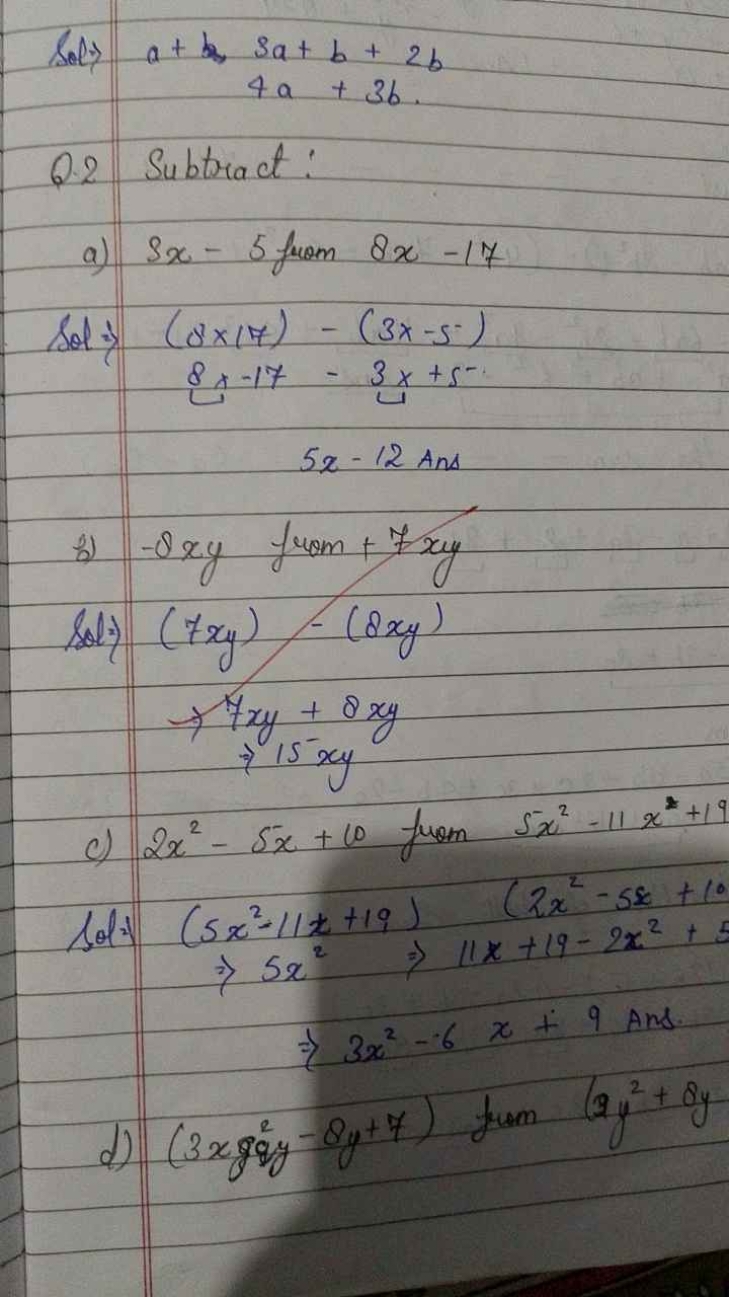 Sol⇒ a + b 3a + b + 2b
4a + 3b.
Q.2 Subtract:
a) 3x - 5 from 8x - 17
Sol⇒ (8x17) - (3x-5)
8x-17 - 3x+5
5x - 12 Ans
b) -8xy from + 7xy
Sol⇒ (7xy) - (8xy)
⇒ 7xy + 8xy
⇒ 15xy
c) 2x² - 5x + 10 from 5x² - 11x² + 19
Sol⇒ (5x²-11x+19) (2x² - 5x + 10
⇒ 5x² ⇒ 11x + 19 - 2x² + 5
⇒ 3x² - 6 x + 9 Ans.
d) - 8y + 7) from y² + 8y